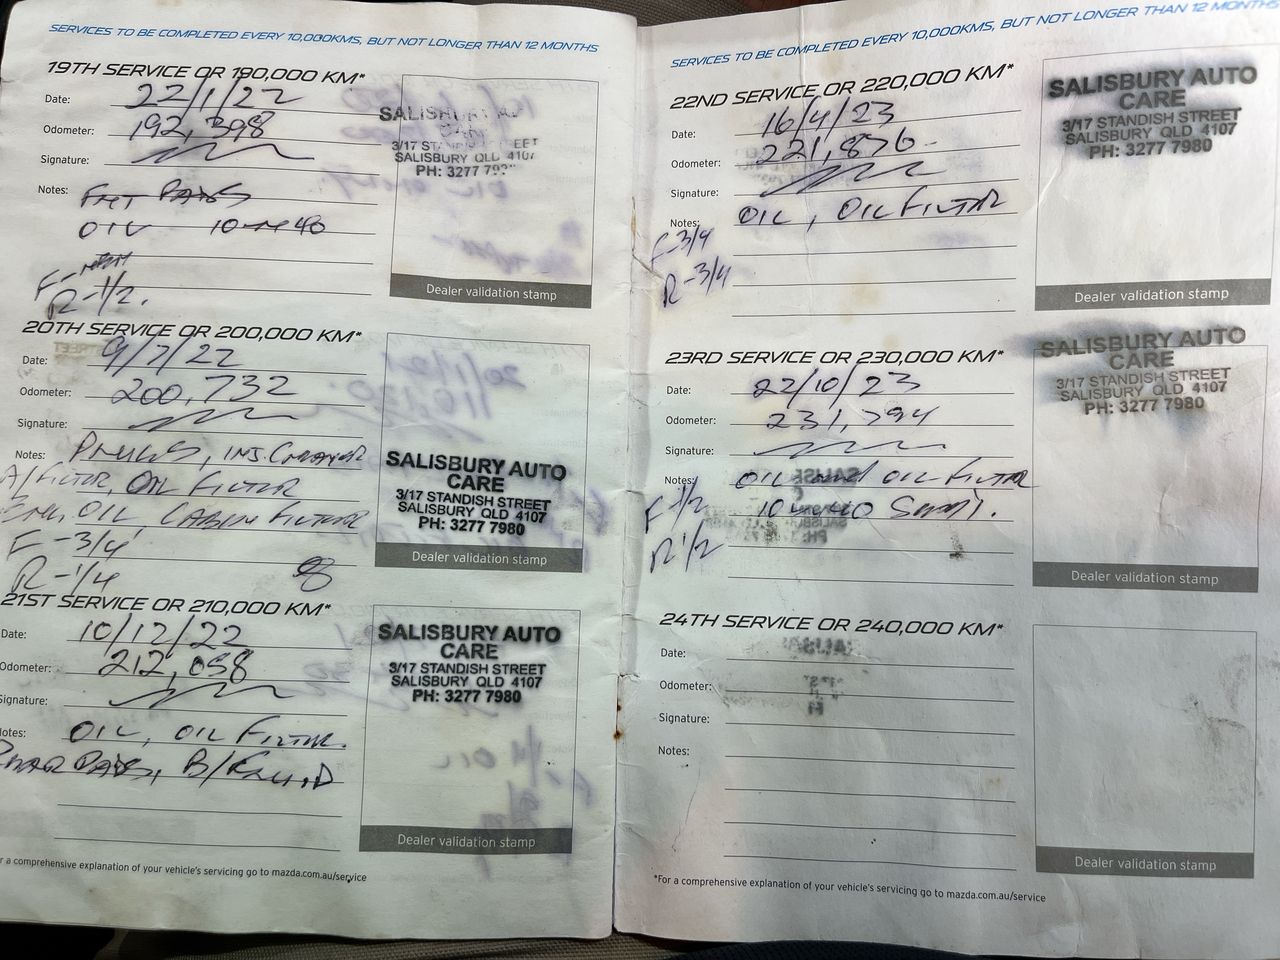 SERVICES TO BE COMPLETED EVERY 10,000KMS, BUT NOT LONGER THAN 12 MONTHS
19TH SERVICE OR 190,000 KM*
Date: 22/1/22
Odometer: 192,398
Signature:
Notes: FRT PADS
OIL 10W40
F-NEW
R-1/2.
SALISBURY AU
CAR
3/17 STANDISH STREET
SALISBURY QLD 4107
PH: 3277 79
Dealer validation stamp
20TH SERVICE OR 200,000 KM*
Date: 9/7/22
Odometer: 200,732
Signature:
Notes: PLUGS, INJ. CLEANER
A/FILTER, OIL FILTER
OIL, CABIN FILTER
F-3/4
R-1/4
SALISBURY AUTO
CARE
3/17 STANDISH STREET
SALISBURY QLD 4107
PH: 3277 7980
Dealer validation stamp
21ST SERVICE OR 210,000 KM*
Date: 10/12/22
Odometer: 212,058
Signature:
Notes: OIL, OIL FILTER.
REAR PADS, B/FLUID
SALISBURY AUTO
CARE
3/17 STANDISH STREET
SALISBURY QLD 4107
PH: 3277 7980
Dealer validation stamp
r a comprehensive explanation of your vehicle's servicing go to mazda.com.au/service
SERVICES TO BE COMPLETED EVERY 10,000KMS, BUT NOT LONGER THAN 12 MONTHS
22ND SERVICE OR 220,000 KM*
Date: 16/4/23
Odometer: 221,876
Signature:
Notes: OIL, OIL FILTER
F-3/4
R-3/4
SALISBURY AUTO
CARE
3/17 STANDISH STREET
SALISBURY QLD 4107
PH: 3277 7980
Dealer validation stamp
23RD SERVICE OR 230,000 KM*
Date: 22/10/23
Odometer: 231,794
Signature:
Notes: OIL and OIL FILTER
10W40
F 1/2
R 1/2
SALISBURY AUTO
CARE
3/17 STANDISH STREET
SALISBURY QLD 4107
PH: 3277 7980
Dealer validation stamp
24TH SERVICE OR 240,000 KM*
Date:
Odometer:
Signature:
Notes:
Dealer validation stamp
*For a comprehensive explanation of your vehicle's servicing go to mazda.com.au/service